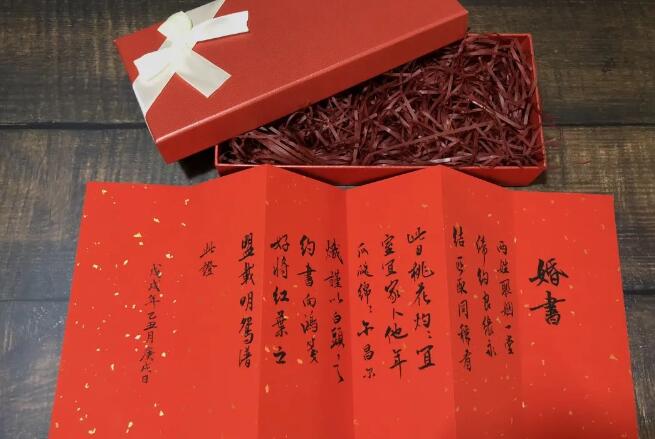 婚書
两姓聯姻一堂
缔约良缘永
结匹配同稱有
此日桃花灼〻宜
室宜家卜他年
瓜瓞綿〻尔昌尔
熾謹以白頭之
约書向鴻箋
好將红葉之
盟載明鴛谱
此證
戊戌年乙丑月庚戌日